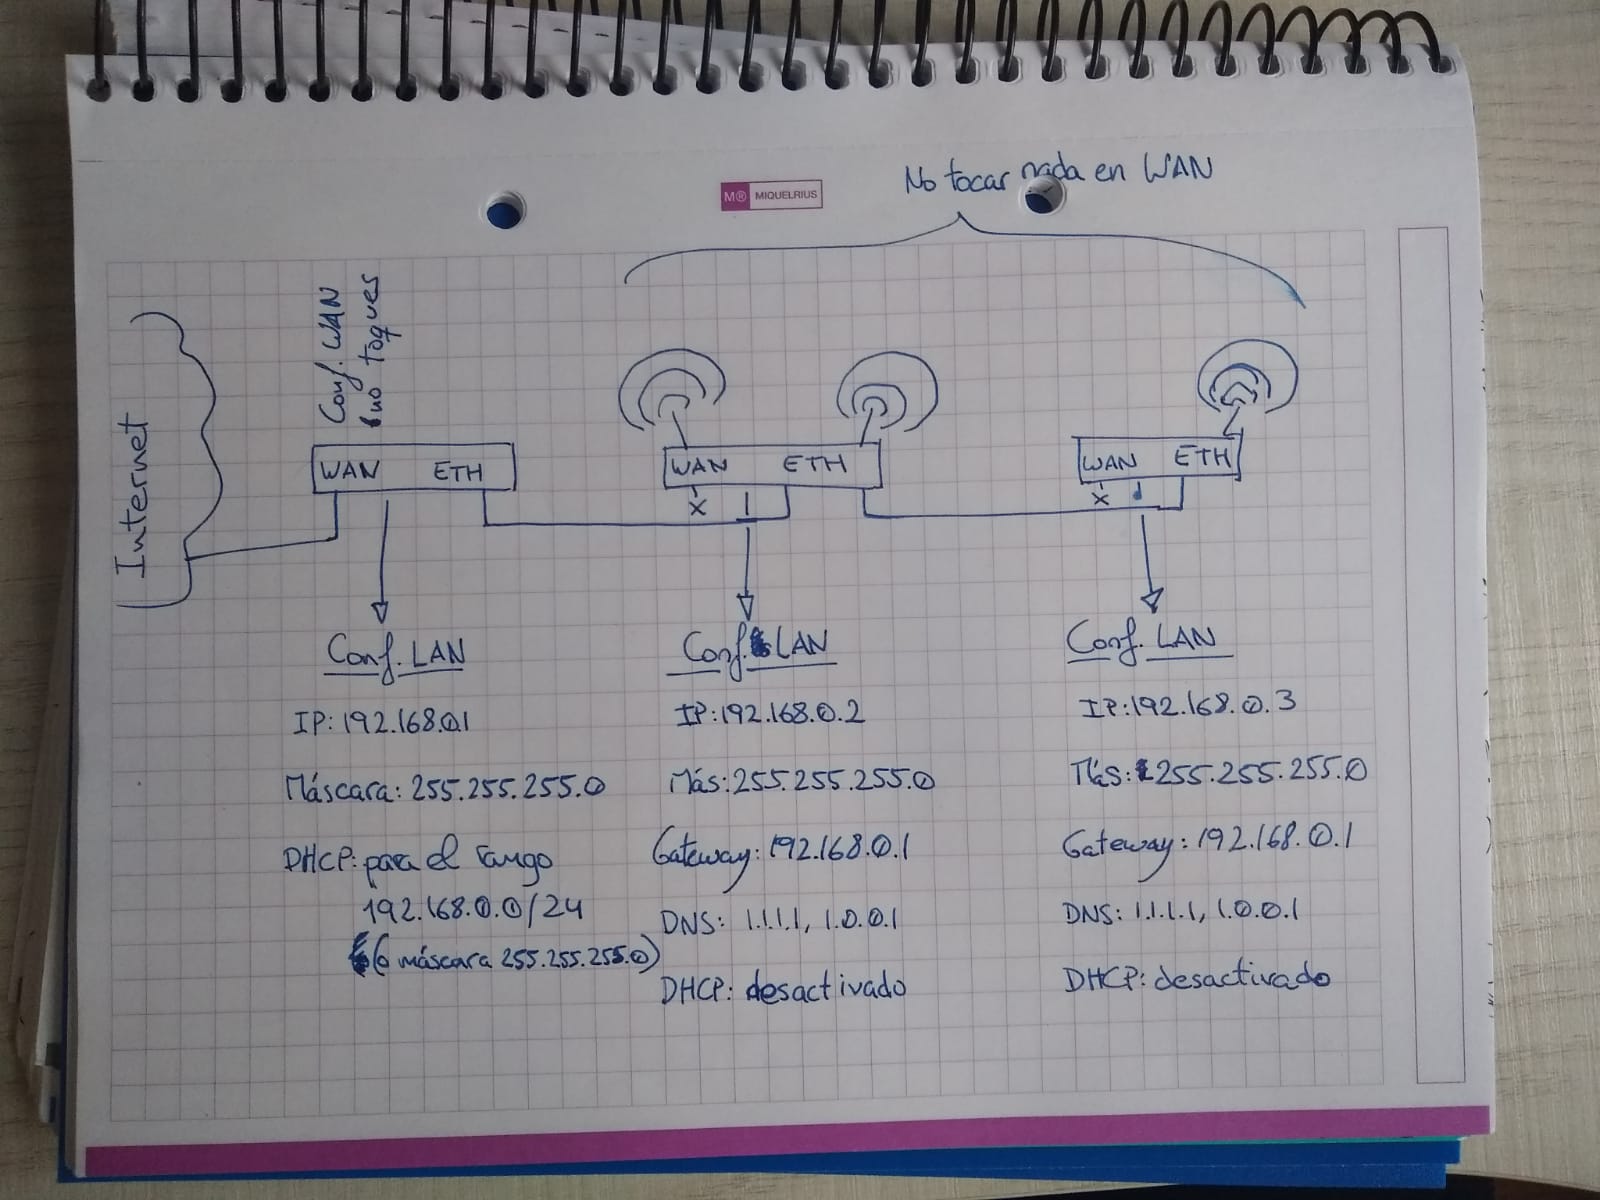 No tocar nada en WAN
M® MIQUELRIUS
Conf. WAN
no toques
Internet
WAN ETH
WAN ETH
WAN ETH
x
x
Conf. LAN
IP: 192.168.0.1
Máscara: 255.255.255.0
DHCP: para el rango
192.168.0.0/24
(o máscara 255.255.255.0)
Conf. LAN
IP: 192.168.0.2
Más: 255.255.255.0
Gateway: 192.168.0.1
DNS: 1.1.1.1, 1.0.0.1
DHCP: desactivado
Conf. LAN
IP: 192.168.0.3
Más: 255.255.255.0
Gateway: 192.168.0.1
DNS: 1.1.1.1, 1.0.0.1
DHCP: desactivado